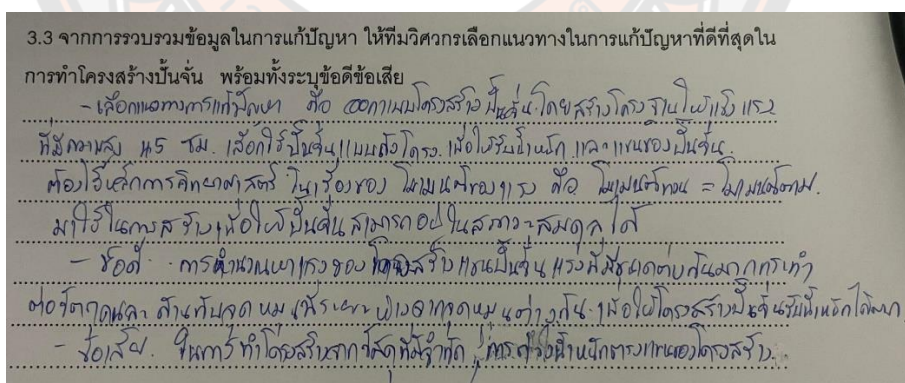 3.3 จากการรวบรวมข้อมูลในการแก้ปัญหา ให้ทีมวิศวกรเลือกแนวทางในการแก้ปัญหาที่ดีที่สุดใน
การทำโครงสร้างปั้นจั่น พร้อมทั้งระบุข้อดีข้อเสีย
- เลือกแนวทางการแก้ปัญหา คือ ออกแบบโครงสร้างปั้นจั่นโดยสร้างโครงฐานให้แข็งแรง
ที่มีความสูง 45 ซม. เลือกใช้ปั้นจั่นแบบ เพื่อให้รับน้ำหนัก และแขนของปั้นจั่น
ต้องใช้หลักการวิทยาศาสตร์ ในเรื่องของ โมเมนต์ของแรง คือ โมเมนต์ทวน = โมเมนต์ตาม
มาใช้ในการสร้างเพื่อให้ปั้นจั่นสามารถอยู่ในสภาวะสมดุลได้
- ข้อดี การคำนวณหาแรงของโครงสร้างแขนปั้นจั่น แรงที่มีขนาดต่างกันมากระทำ
ต่อวัตถุคนละด้านกับจุดหมุนที่ระยะห่างจากจุดหมุนต่างกัน เพื่อให้โครงสร้างปั้นจั่นรับน้ำหนักได้
- ข้อเสีย ในการทำโครงสร้างจากวัสดุที่มีจำกัด น้ำหนักตรงแขนของโครงสร้าง